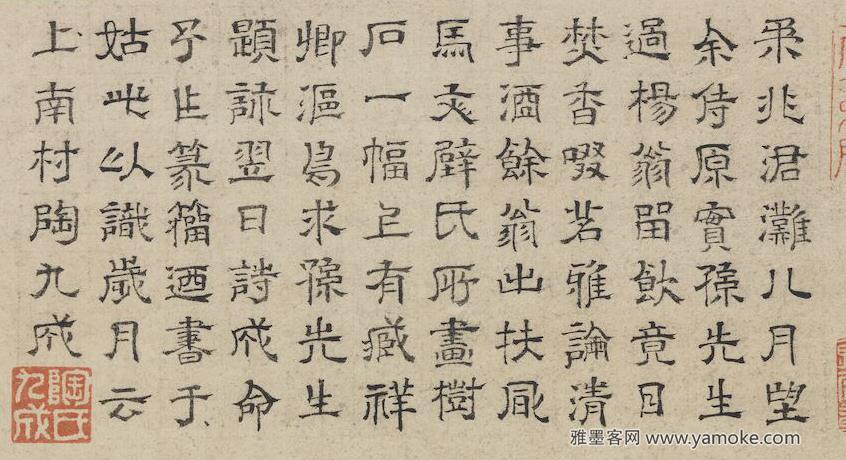 柔兆涒灘八月望
余侍原實孫先生
過楊翁留飲竟日
焚香啜茗雅論清
事酒餘翁出扶風
馬文璧氏所畫樹
石一幅上有臧祥
卿漚求孫先生
題詠翌日詩成命
予篆籀迺書于
上
姑此以識歲月云
南村陶九成
陶氏九成
雅墨客网 www.yamoke.com